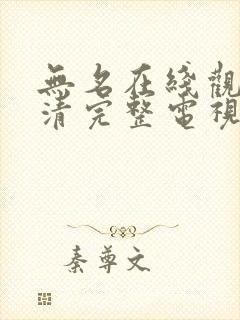 無名在綫觀
清完整電視
秦尊文